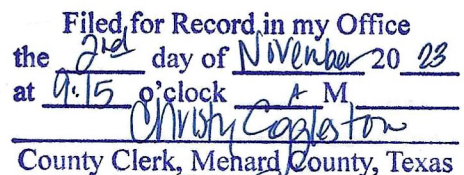 Filed for Record in my Office
the 2nd day of November 20 23
at 9:15 o'clock A M
Christy Eggleston
County Clerk, Menard County, Texas